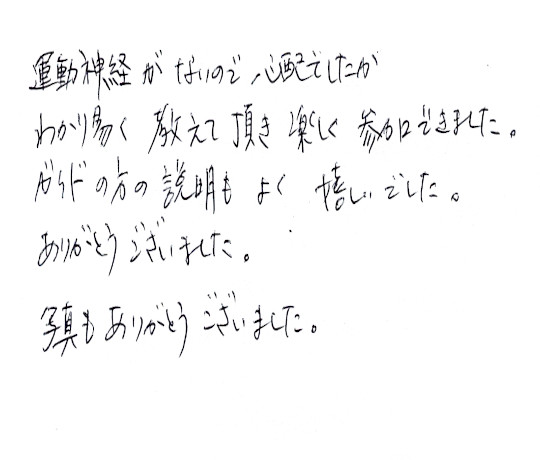 運動神経がないので心配でしたが
わかり易く教えて頂き楽しく参加できました。
ガイドの方の説明もよく嬉しいでした。
ありがとうございました。
写真もありがとうございました。